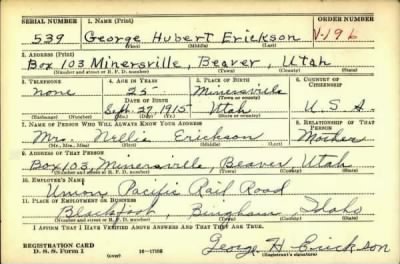 SERIAL NUMBER 1. NAME (Print) ORDER NUMBER
539 George Hubert Erickson V-196
(First) (Middle) (Last)
2. ADDRESS (Print)
Box 103 Minersville, Beaver, Utah
(Number and street or R. F. D. number) (Town) (County) (State)
3. TELEPHONE 4. AGE IN YEARS 5. PLACE OF BIRTH 6. COUNTRY OF CITIZENSHIP
none 25 Minersville
DATE OF BIRTH (Town or county)
Sept. 27, 1915 Utah U.S.A.
(Exchange) (Number) (Mo.) (Day) (Yr.) (State or country)
7. NAME OF PERSON WHO WILL ALWAYS KNOW YOUR ADDRESS 8. RELATIONSHIP OF THAT PERSON
Mrs. Nellie Erickson Mother
(Mr., Mrs., Miss) (First) (Middle) (Last)
9. ADDRESS OF THAT PERSON
Box 103, Minersville, Beaver, Utah
(Number and street or R. F. D. number) (Town) (County) (State)
10. EMPLOYER'S NAME
Union Pacific Rail Road
11. PLACE OF EMPLOYMENT OR BUSINESS
Blackfoot, Bingham Idaho
(Number and street or R. F. D. number) (Town) (County) (State)
I AFFIRM THAT I HAVE VERIFIED ABOVE ANSWERS AND THAT THEY ARE TRUE.
REGISTRATION CARD
D. S. S. FORM 1 (over) 16-17105 George H Erickson
(Registrant's signature)